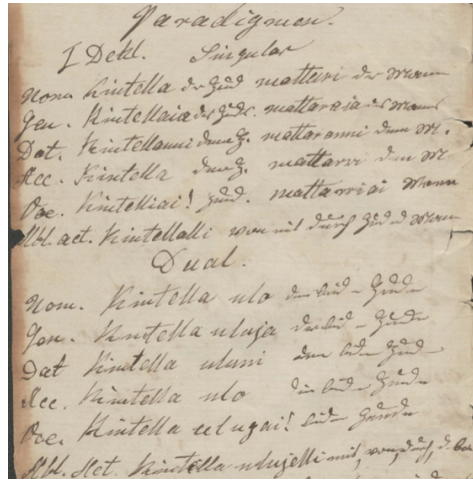 Paradigmen.
I Dekl. Singular
Nom. Kintella der Hund mattari der Mann
Gen. Kintellaia des Hunds. mattaraia des Manns
Dat. Kintellanni dem H. mattaranni dem M.
Acc. Kintella den H. mattarri den M.
Voc. Kintelliai! Hund. mattarriai Mann
Abl. act. Kintellalli von mit durch Hund Mann
Dual.
Nom. Kintella ulo die beiden Hunde
Gen. Kintella uluja der beiden Hunde
Dat Kintella uluni den beiden Hunden
Acc. Kintella ulo die beiden Hunde
Voc. Kintella ulugai! beiden Hunde
Abl. Act. Kintella ulujelli mit, von, durch, d.